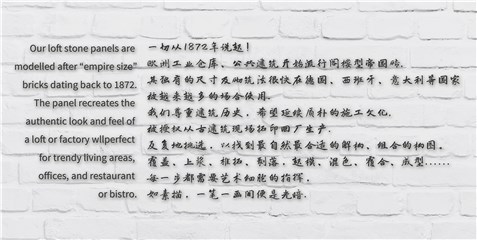 Our loft stone panels are
modelled after “empire size”
bricks dating back to 1872.
The panel recreates the
authentic look and feel of
a loft or factory wllperfect
for trendy living areas,
offices, and restaurant
or bistro.
一切从1872年说起！
欧洲工业仓库、公共建筑开始流行阁楼型帝国砖。
其独有的尺寸及砌筑法很快在德国、西班牙、意大利等国家
被越来越多的场合使用。
我们尊重建筑历史，希望延续质朴的施工文化。
被授权从古建筑现场拓印回厂生产。
反复地挑选，以找到最自然最合适的解构、组合的构图。
覆盖、上浆、椎拓、制落、起模、混色、覆合、成型……
每一步都需要艺术细胞的指挥，
如素描，一笔一画间便是光暗.